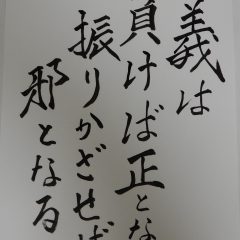 義は
貫けば正とな
振りかざせば
邪となる